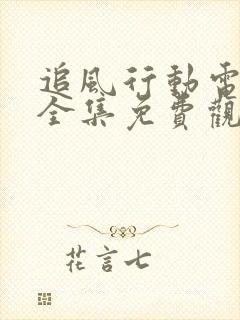 追風行動電
全集免費觀
花言七